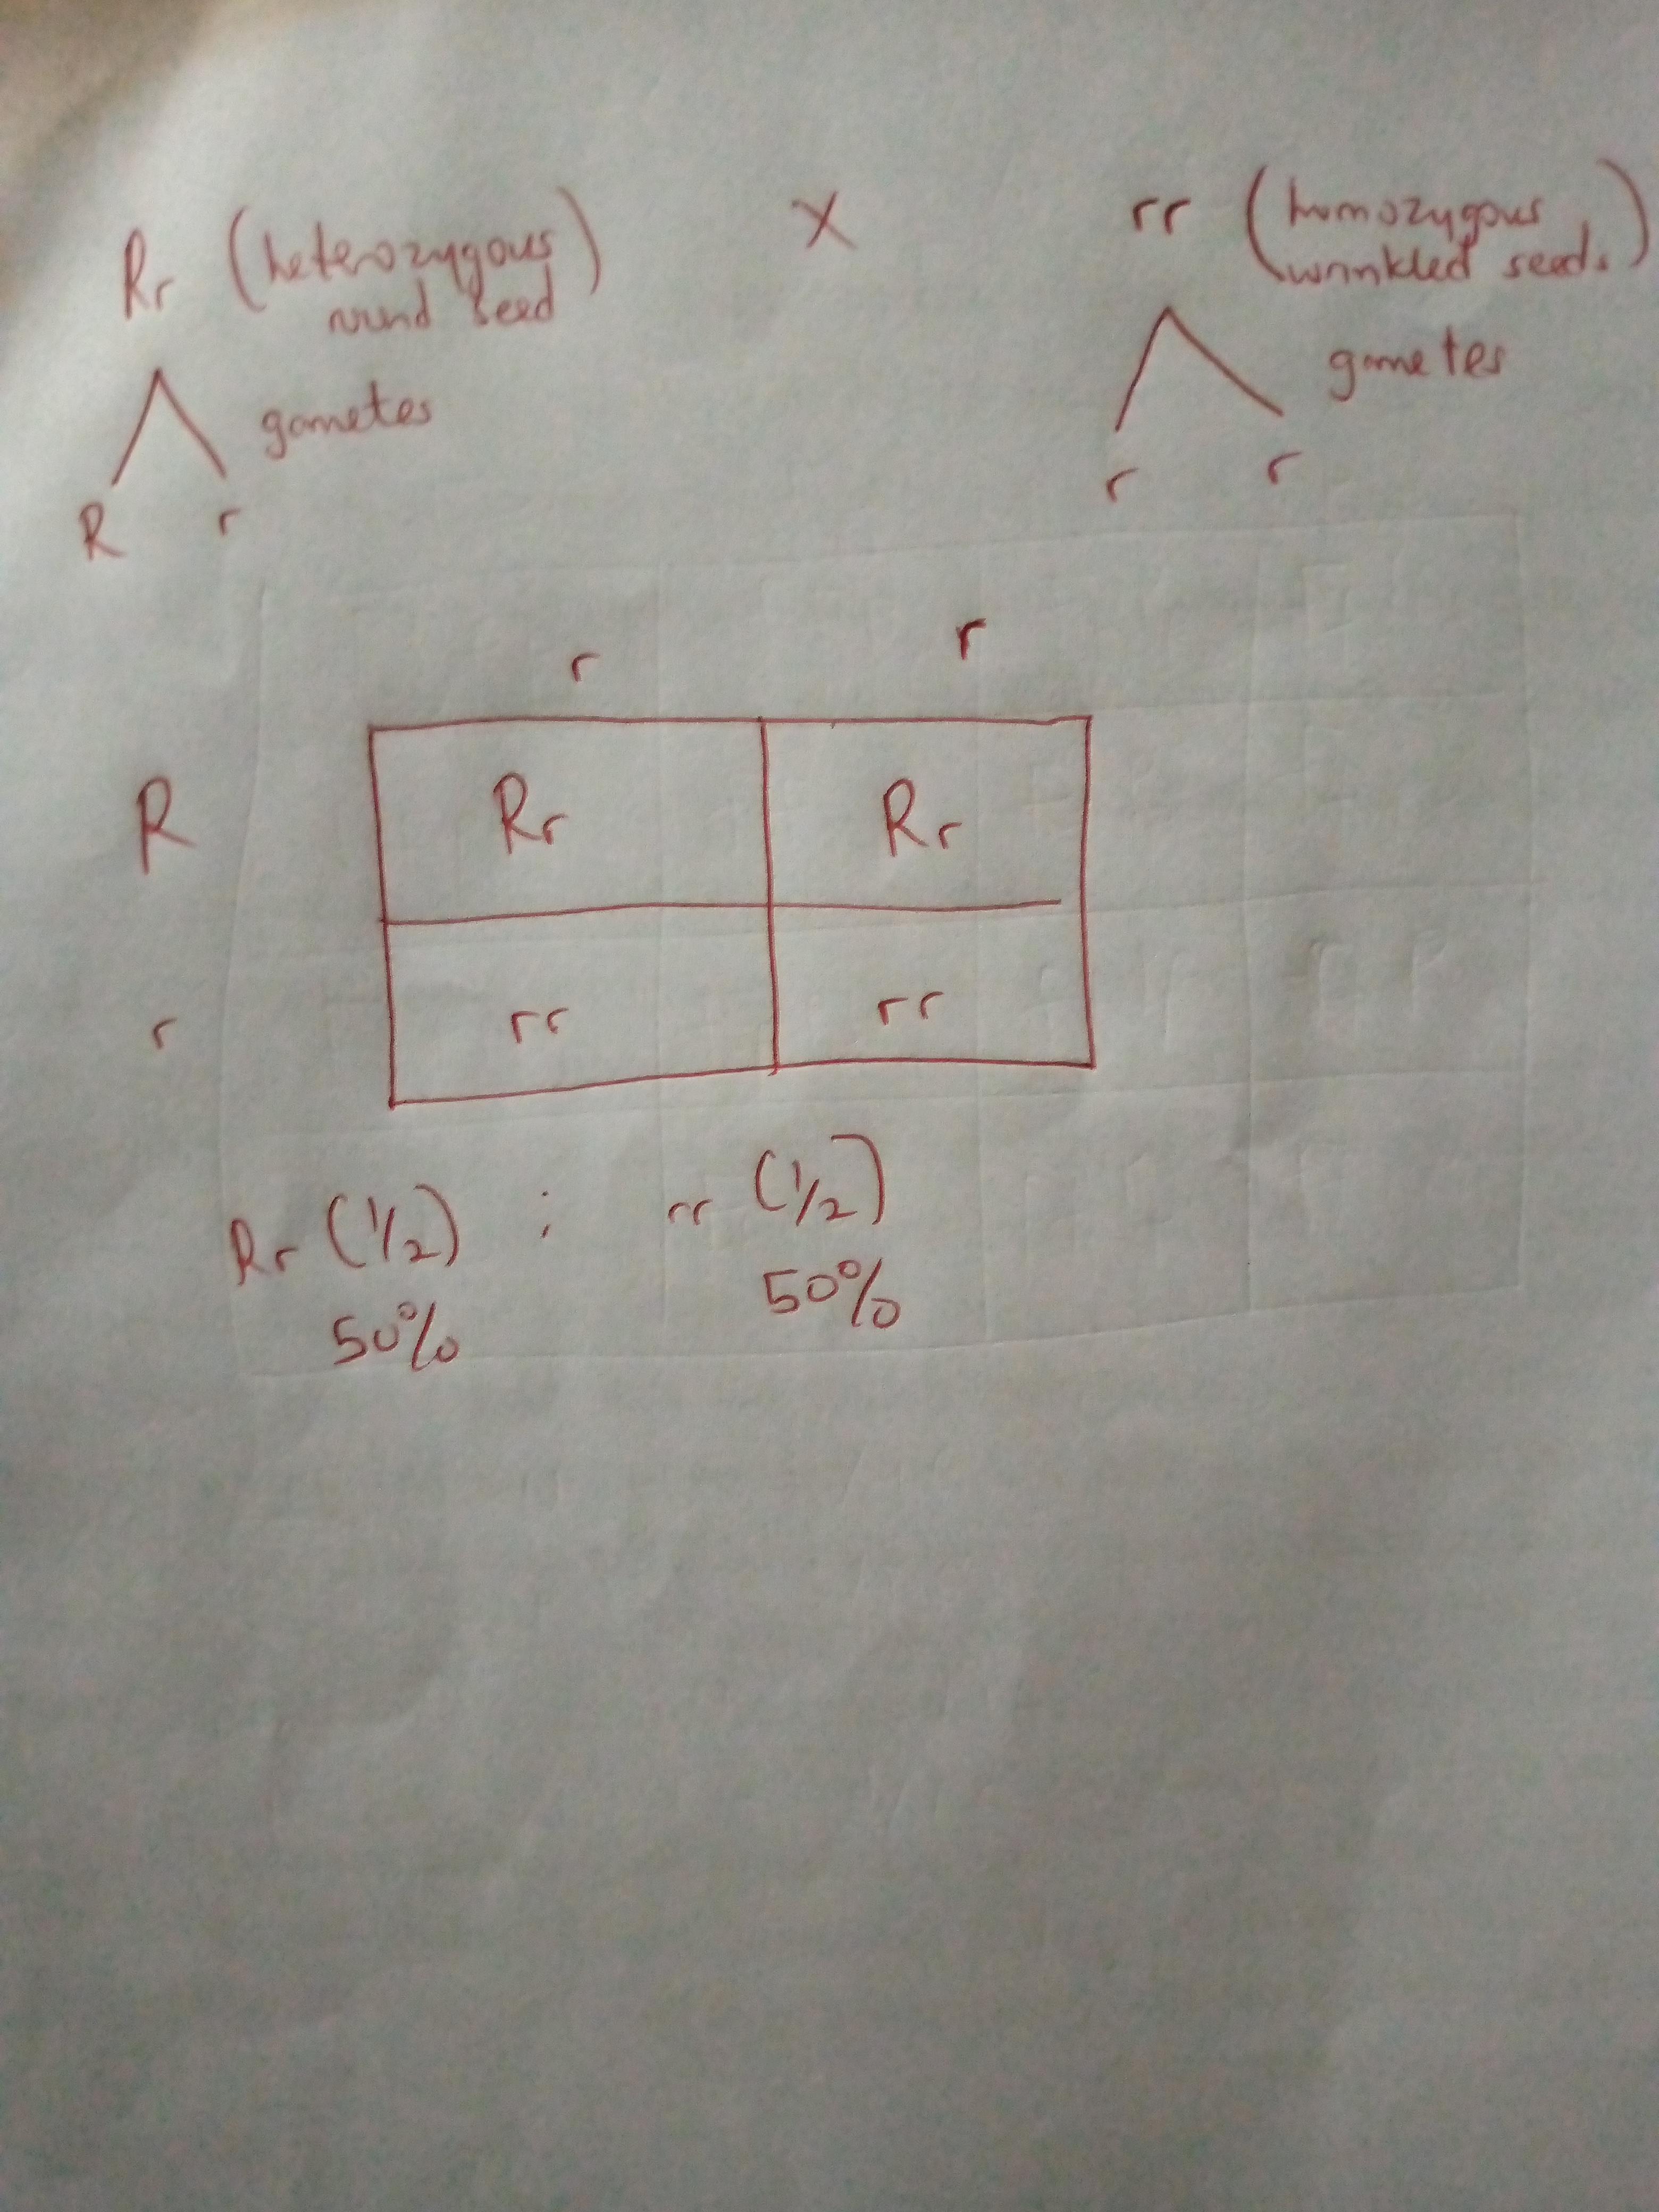 Rr (heterozygous round seed) X rr (homozygous wrinkled seeds)
gametes gametes
R r r r
r r
R Rr Rr
r rr rr
Rr (1/2) ; rr (1/2)
50% 50%